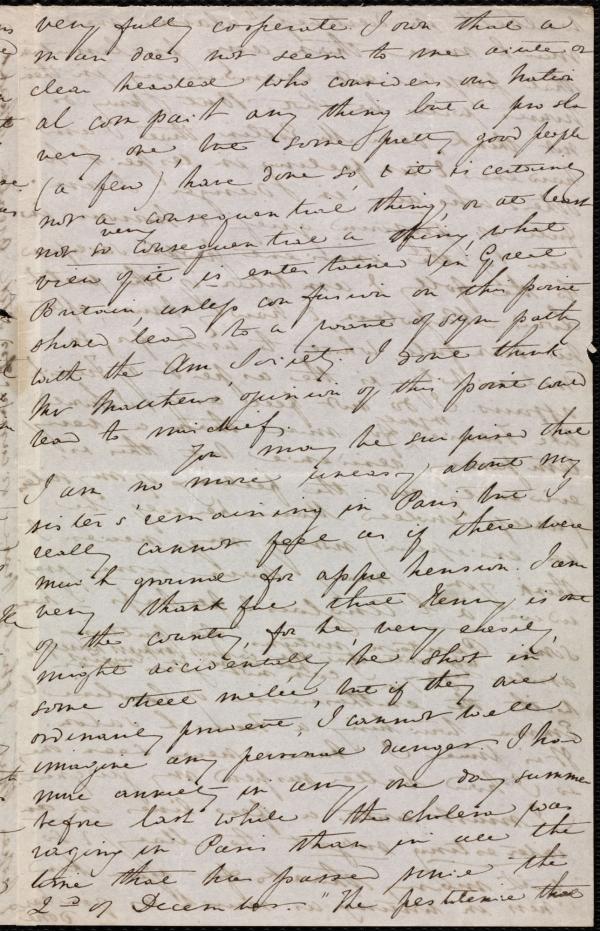 very fully cooperate. I own that a
man does not seem to me acute or
clear headed who considers our Nation
al compact any thing but a pro sla
very one, but some pretty good people
(a few), have done so, & it is certainly
not a consequential thing, or at least
not so very consequential a thing, what
view of it is entertained in Great
Britain, unless confusion on this point
should lead to a want of sympathy
with the Am Society. I dont think
Mr Matthews' opinion of this point could
lead to mischief.
You may be surprised that
I am no more uneasy about my
sister's remaining in Paris, but I
really cannot feel as if there were
much ground for apprehension. I am
very thankful that Henry is out
of the country, for he, very easily,
might accidentally be shot in
some street melée, but if they are
ordinarily prudent, I cannot well
imagine any personal danger. I had
more anxiety in any one day summer
before last while the cholera was
raging in Paris than in all the
time that has passed since the
2nd of December. "The pestilence that